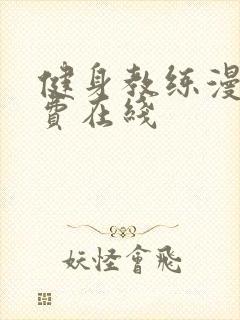 健身教练漫
費在綫
妖怪會飛